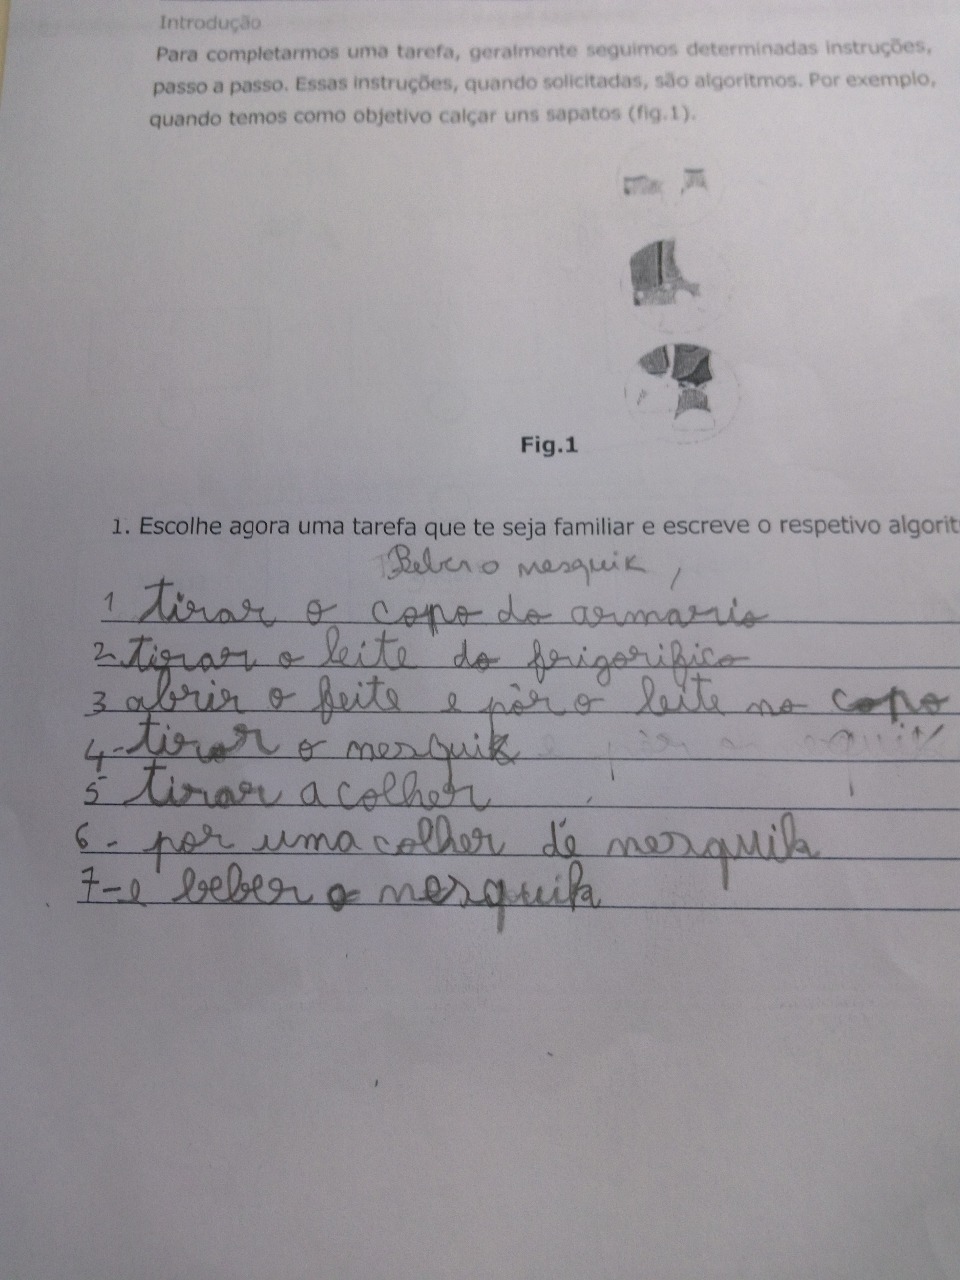 Introdução
Para completarmos uma tarefa, geralmente seguimos determinadas instruções,
passo a passo. Essas instruções, quando solicitadas, são algoritmos. Por exemplo,
quando temos como objetivo calçar uns sapatos (fig.1).
Fig.1
1. Escolhe agora uma tarefa que te seja familiar e escreve o respetivo algorit
Beber o nesquik
1 tirar o copo do armario
2-tirar o leite do frigorifico
3 abrir o leite e pôr o leite no copo
4-tirar o nesquik
5 tirar a colher
6- por uma colher de nesquik
7-e beber o nesquik